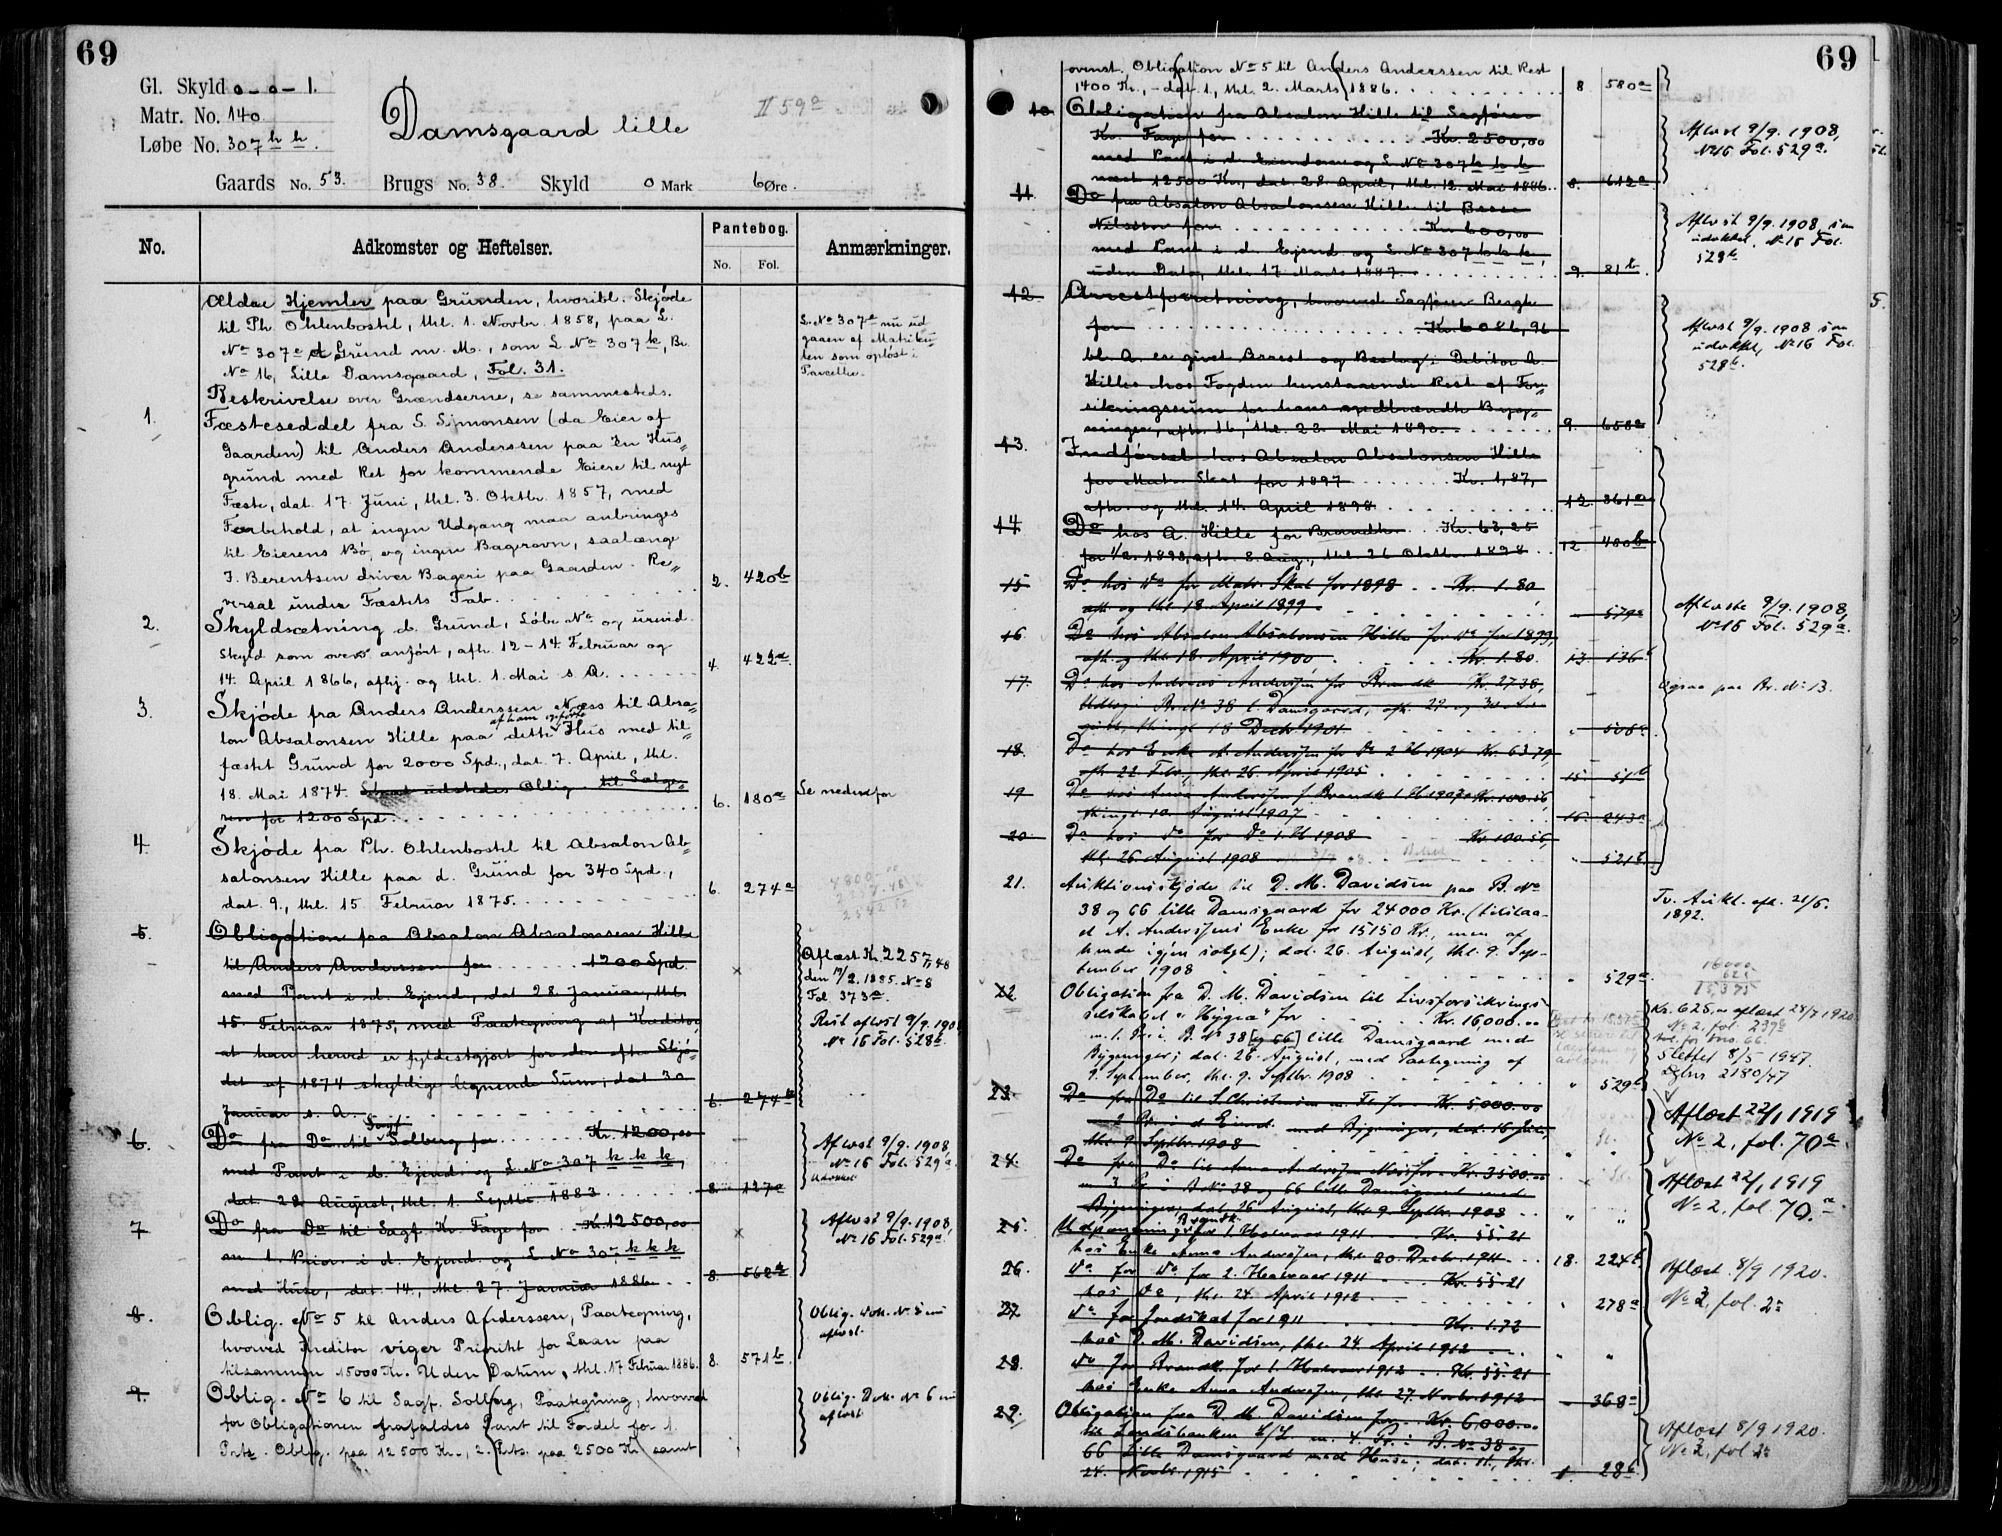 69
Gl. Skyld 0-0-1.
Matr. No. 140
Løbe No. 307 k k.
Damsgaard lille
II 59a
Gaards No. 53. Brugs No. 38. Skyld 0 Mark 6 Øre.
No. Adkomster og Heftelser. Pantebog. No. Fol. Anmærkninger.
Ældre Hjemler paa Grunden, hvoribl. Skjøde
til Ph. Ohlenbostel, thl. 1. Novbr. 1858, paa L.
No 307e d Grund m. M., som L No 307k, Br.
No 16, Lille Damsgaard, Fol. 31.
L. No 307e nu ud
gaaen af Matriku-
len som opløst i
Parceller.
Beskrivelse over Grændserne, se sammesteds.
1. Fæsteseddel fra S. Simonsen (da Eier af
Gaarden) til Anders Anderssen paa En Hus-
grund med Ret for kommende Eiere til nyt
Fæste, dat. 17 Juni, thl. 3. Oktbr. 1857, med
Forbehold, at ingen Udgang maa anbringes
til Eierens Bö, og ingen Bagerovn, saalænge
J. Berentsen driver Bageri paa Gaarden. Re-
versal under Fæstets Tab. 2. 420b
2. Skyldsætning d. Grund, Løbe No og
Skyld som ovenf anført, afh. 12-14 Februar og
14. April 1866, afhj. og thl. 1. Mai s. A. 4. 422a
3. Skjøde fra Anders Anderssen Næss til Absa-
lon Absalonsen Hille paa dette af ham opførte Hus med til-
fæstet Grund for 2000 Spd., dat. 7. April, thl.
18. Mai 1874. Straxt udstedes Oblig. til Sælge-
ren for 1200 Spd. 6. 180a Se nedenfor
4. Skjøde fra Ph. Ohlenbostel til Absalon Ab-
salonsen Hille paa d. Grund for 340 Spd.,
dat. 9., thl. 15 Februar 1875. 6. 274a
5. Obligation fra Absalon Absalonsen Hille
til Anders Anderssen for 1200 Spd.
med Pant i d. Ejend., dat 28 Januar, thl.
15. Februar 1875, med Paategning af Kreditor,
at han herved er fyldestgjort for den efter Skjø-
det af 1874 skyldige lignende Sum; dat 30
Januar s. A. 6. 274b
Aflæst Kr. 2257,48
den 17/2. 1885. No 8
Fol. 373a.
Rest aflæst 9/9. 1908
No 16 Fol. 528b.
6. Do fra Do til Sagf. Solberg for Kr. 1200,00
med Pant i d. Ejend og L. No 307 k k k,
dat. 28 August, thl. 1. Septbr 1883 8. 127a
Aflæst 9/9. 1908,
No 16 Fol. 529a.
7. Do fra Do til Sagf. Kr. Faye for Kr. 12500,00
m. 1. Prior. i d. Ejend. og L No 307 k k k
med Huse, dat. 14., thl. 27. Januar 1886 8. 562a
Aflæst 9/9. 1908,
No 16 Fol. 529a.
8. Oblig. No 5 til Anders Anderssen, Paategning,
hvorved Kreditor viger Prioritet for Laan paa
tilsammen 15000 Kr. Uden Datum, thl. 17 Februar 1886. 8. 571b.
Oblig. Dok. No 5 nu
aflæst.
9. Oblig. No 6 til Sagf. Solberg, Paategning, hvorved
for Obligationen frafaldes Pant til Fordel for 1.
Prts. Oblig. paa 12500 Kr., 2. Prts. paa 2500 Kr. samt
Oblig. Dok. No 6 nu
aflæst
69
ovenst. Obligation No 5 til Anders Anderssen til Rest
1400 Kr., - dat. 1., thl. 2. Marts 1886. 8. 580a
10. Obligation fra Absalon Hille til Sagfører
Kr. Faye for Kr. 2500,00
med Pant i d. Eiendom og L No 307 k k k
næst 12500 Kr., dat. 28. April, thl. 12. Mai 1886. 8. 612a
Aflæst 9/9. 1908,
No 16 Fol. 529a.
11. Do fra Absalon Absalonsen Hille til Basse
Nilssen for Kr. 600,00
med Pant i d. Ejend. og L No 307 k k k,
uden Dato, thl. 17 Marts 1887. 9. 81b
Aflæst 9/9. 1908, som
udvekket. No 16 Fol.
528b
12. Arrestforretning, hvorved Sagfører Bergh
for Kr. 6086,96
bl. A. er givet Arrest og Beslag i Debitor A.
Hilles hos Fogden henstaaende Rest af For-
sikringssum for hans nedbrændte Byg-
ninger, afh. 16, thl. 23. Mai 1890. 9. 658a
Aflæst 9/9. 1908 som
udvekket, No 16 Fol.
528b.
13. Indførsel hos Absalon Absalonsen Hille
for Matr. Skat for 1897 Kr. 1,87,
afh. og thl. 14. April 1898 12. 361a
14. Do hos A. Hille for Brandk. Kr. 63,25
for 1/2. 1898, afh. 8. Aug., thl. 26 Oktbr. 1898 12. 480b
15. Do hos Do for Matr. Skat for 1898 Kr. 1.80
afh. og thl. 18. April 1899. 579a
Aflæste 9/9. 1908,
No 16 Fol. 529a.
16. Do hos Absalon Absalonsen Hille for Do for 1899,
afh. og thl. 18. April 1900 Kr. 1.80. 13 136b
17. Do hos Andreas Anderssen for Brandk. Kr. 27.38,
Udlæg i Br. No 38 l. Damsgaard, afh. 29. og 30.
thingl. 18 Decbr 1901 505a
Ogsaa paa Br. No 13.
18. Do hos Enke A. Anderssen for Do 2 H 1904 Kr. 63.79,
afh. 22. Febr., thl. 26. April 1905 15 51b
19. Do hos Anna Anderssen f. Brandk. 1 H 1907 Kr. 100.56,
thingl. 10. August 1907 16. 243a
20. Do hos Do for Do 1. H 1908 Kr. 100.56,
thl. 26. August 1908 521b
21. Auktionsskjøde til D. M. Davidsen paa B. No
38 og 66 lille Damsgaard for 24000 Kr. (tilslaa-
et A. Anderssens Enke for 15150 Kr., men af
hende igjen solgt); dat. 26. August, thl. 9. Sep-
tember 1908 529a.
Tv. Aukt. afh. 21/6.
1892.
22. Obligation fra D. M. Davidsen til Livsforsikrings-
selskabet "Hygea" for Kr. 16,000.00
m. 1. Pr. i B. No 38 [og 66] lille Damsgaard med
Bygninger; dat. 26. August, med Paategning af
9. September, thl. 9. Septbr. 1908 529b
Kr. 625,00 aflæst 28/7 1920
No 2, fol. 239b
Slettet 8/5 1947.
Dgbnr 2180/47
23. Do fra Do til S. Christensen for Kr. 5000.00
m. 2 Pr. i d. Eiend. med Bygninger, dat. 16 Juli,
thl. 9. Septbr. 1908
Aflæst 22/1 1919
No 2, fol. 70a.
24. Do fra Do til Anna Anderssen for Kr. 3500.00
m. 3 Pr. i B No 38 og 66 lille Damsgaard med
Bygninger, dat. 26 August, thl. 9. Septbr. 1908
Aflæst 22/1 1919
No 2, fol. 70.a
25. Udpantning Brandk. for 1. Halvaar 1911 Kr. 55.21
hos Enke Anna Anderssen, thl. 20 Decbr. 1911. 18. 224b
26. Do for Do for 2. Halvaar 1911 Kr. 55.21
hos Do, thl. 24. April 1912. 278a
Aflæst 8/9 1920.
No 3, fol. 2a
27. Do for Jordskat for 1911 Kr. 1.72
hos D. M. Davidsen, thl. 24. April 1912
28. Do for Brandk. for 1. Halvaar 1912 Kr. 55.21
hos Enke Anna Anderssen, thl. 27. Novbr. 1912. 368a
29. Obligation fra D. M. Davidsen for Kr. 6,000.00
til Landsbanken A/S m. 4. Pr. i B. No 38 og
66 Lille Damsgaard med Huse; dat. 11., thl.
24. Novbr. 1915 1. 28b
Aflæst 8/9 1920.
No 3, fol. 2a